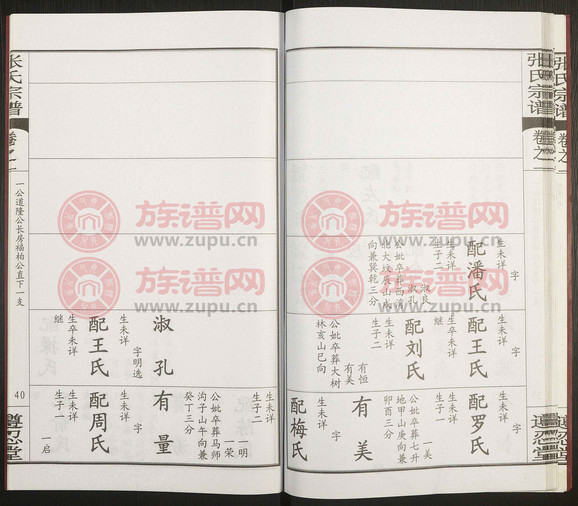 张氏宗谱
卷之一
字
生未详
配潘氏
生未详
生子二
淑良
淑孔
公妣卒葬西湾
北大坟辰山戌
向兼巽乾三分
字
生未详
配王氏
生卒未详
继
配刘氏
生未详
生子二
有恒
有美
公妣卒葬大树
林亥山巳向
字
生未详
配罗氏
生未详
生子一
一美
公妣卒葬七升
地甲山庚向兼
卯酉三分
有美
字
生未详
配梅氏
生未详
生子二
一明
一荣
公妣卒葬马师
沟子山午向兼
癸丁三分
淑孔
字明选
生未详
配王氏
生卒未详
继
有量
字
生未详
配周氏
生未详
生子一
一启
遵忍堂
张氏宗谱
卷之一
一公道隆公长房福柏公直下一支
40
遵忍堂
族谱网
www.zupu.cn
族谱网
www.zupu.cn
族谱网
www.zupu.cn
族谱网
www.zupu.cn